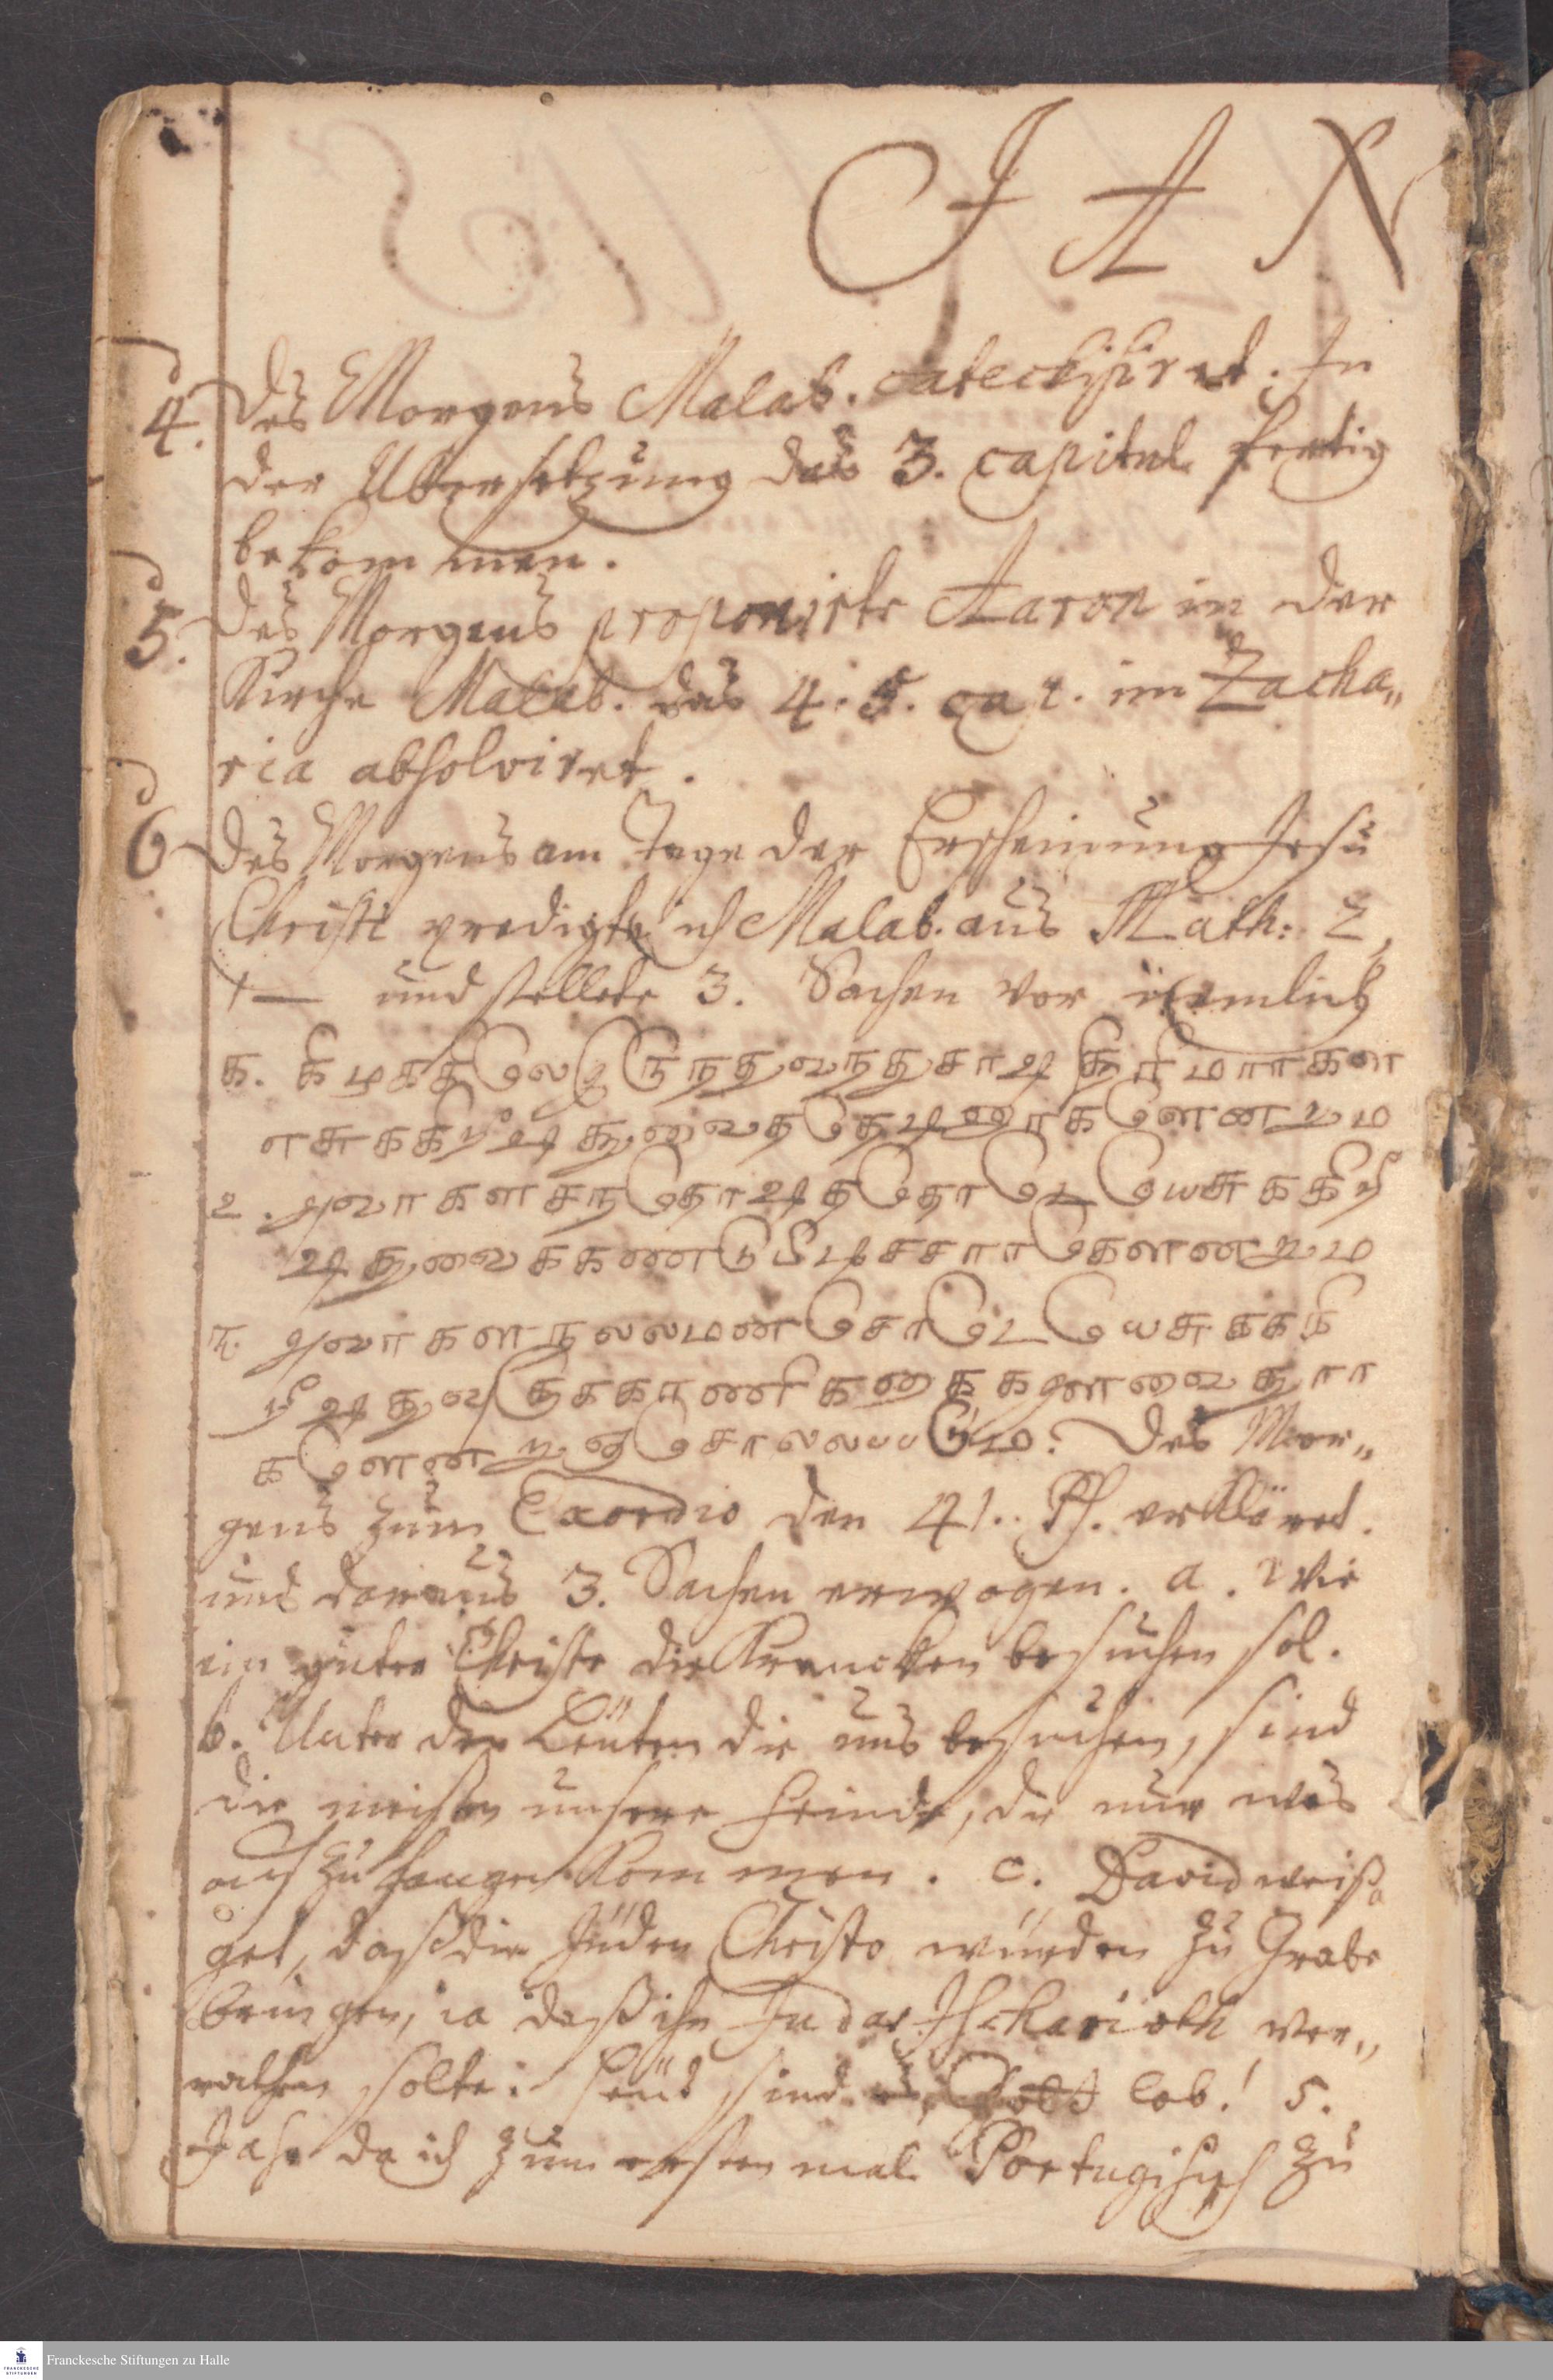 J A N
4. Des Morgens Malab. catechisiret. In
der Ubersetzung das 3. capitul fertig
bekommen.
5. Des Morgens proponirte Aaron in der
Kirche Malab. das 4. 5. cap. im Zacha„
ria absolviret.
6 Des Morgens am Tage der Erscheinung Jesu
Christi predigte ich Malab. aus Math: 2,
1— und stellete 3. Sachen vor nemlich
க. கிழககிலேருநதுவநதசாஷதிரிமாரகள
எசுககிறிஷதுவைததேடினாகளெனறும
உ. அவரகள சநதோஷததோடேயேசுககிறி
ஷதுவைககணடுபிடிசசாரகளெனறும
௩. அவரகளநலலமனசோடேயேசுககி
றிஷதுவுககுகாணிககைகளைவைததார
களெனறுஞசொலலபபடும. Des Mor„
gens zum Exordio den 41. Ps. erkläret.
und daraus 3. Sachen erwogen. a. Wie
ein guter Christe die Krancken besuchen sol.
b. Unter den Leuten die uns besuchen, sind
die meisten unsere Feinde, die nur was
aufzufangen kommen. c. David weißa
get, daß die Jüden Christo würden zu Grabe
bringen, ia daß ihn Judas Ischarioth ver„
rathen solte. heut sind Gott lob! 5.
Jahr da ich zum ersten mal Portugisisch zu
Franckesche Stiftungen zu Halle